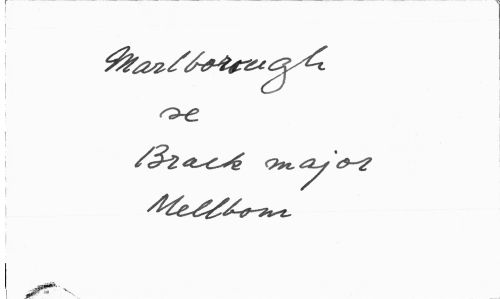 Marlborough
se
Brack major
Mellbom